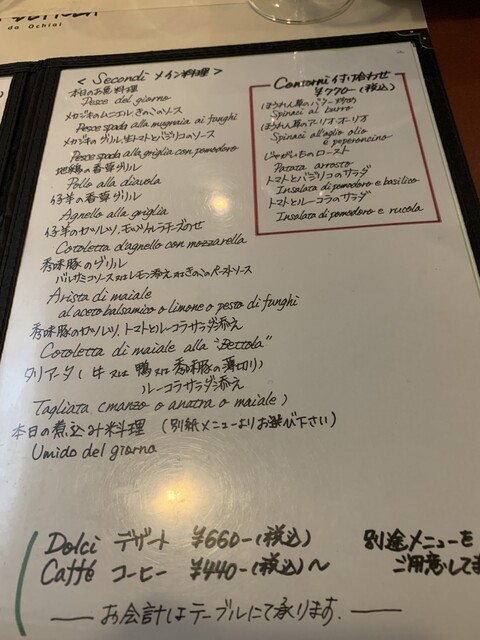 da Ochiai
< Secondi メイン料理 >
本日のお魚料理
Pesce del giorno
メカジキのムニエル、きのこのソース
Pesce spada alla mugnaia ai funghi
メカジキのグリル、生トマトとバジリコのソース
Pesce spada alla griglia con pomodoro
地鶏の香草グリル
Pollo alla diavola
仔羊の香草グリル
Agnello alla griglia
仔羊のカツレツ、モッツァレラチーズのせ
Cotoletta d'agnello con mozzarella
秀味豚のグリル
バルサミコソース 又は レモン添え 又は きのこのペーストソース
Arista di maiale
al aceto balsamico o limone o pesto di funghi
秀味豚のカツレツ、トマトとルーコラサラダ添え
Cotoletta di maiale alla "Bettola"
タリアータ ( 牛 又は 鴨 又は 秀味豚の薄切り)
ルーコラサラダ添え
Tagliata (manzo o anatra o maiale)
本日の煮込み料理 (別紙メニューよりお選び下さい)
Umido del giorno
Contorni 付け合わせ
¥770-(税込)
ほうれん草のバター炒め
Spinaci al burro
ほうれん草のアーリオ・オーリオ
Spinaci all'aglio olio
e peperoncino
じゃがいものロースト
Patata arrosto
トマトとバジリコのサラダ
Insalata di pomodoro e basilico
トマトとルーコラのサラダ
Insalata di pomodoro e rucola
Dolci デザート ¥660-(税込)
Caffé コーヒー ¥440-(税込)～
別途メニューを
ご用意してま
— お会計はテーブルにて承ります. —